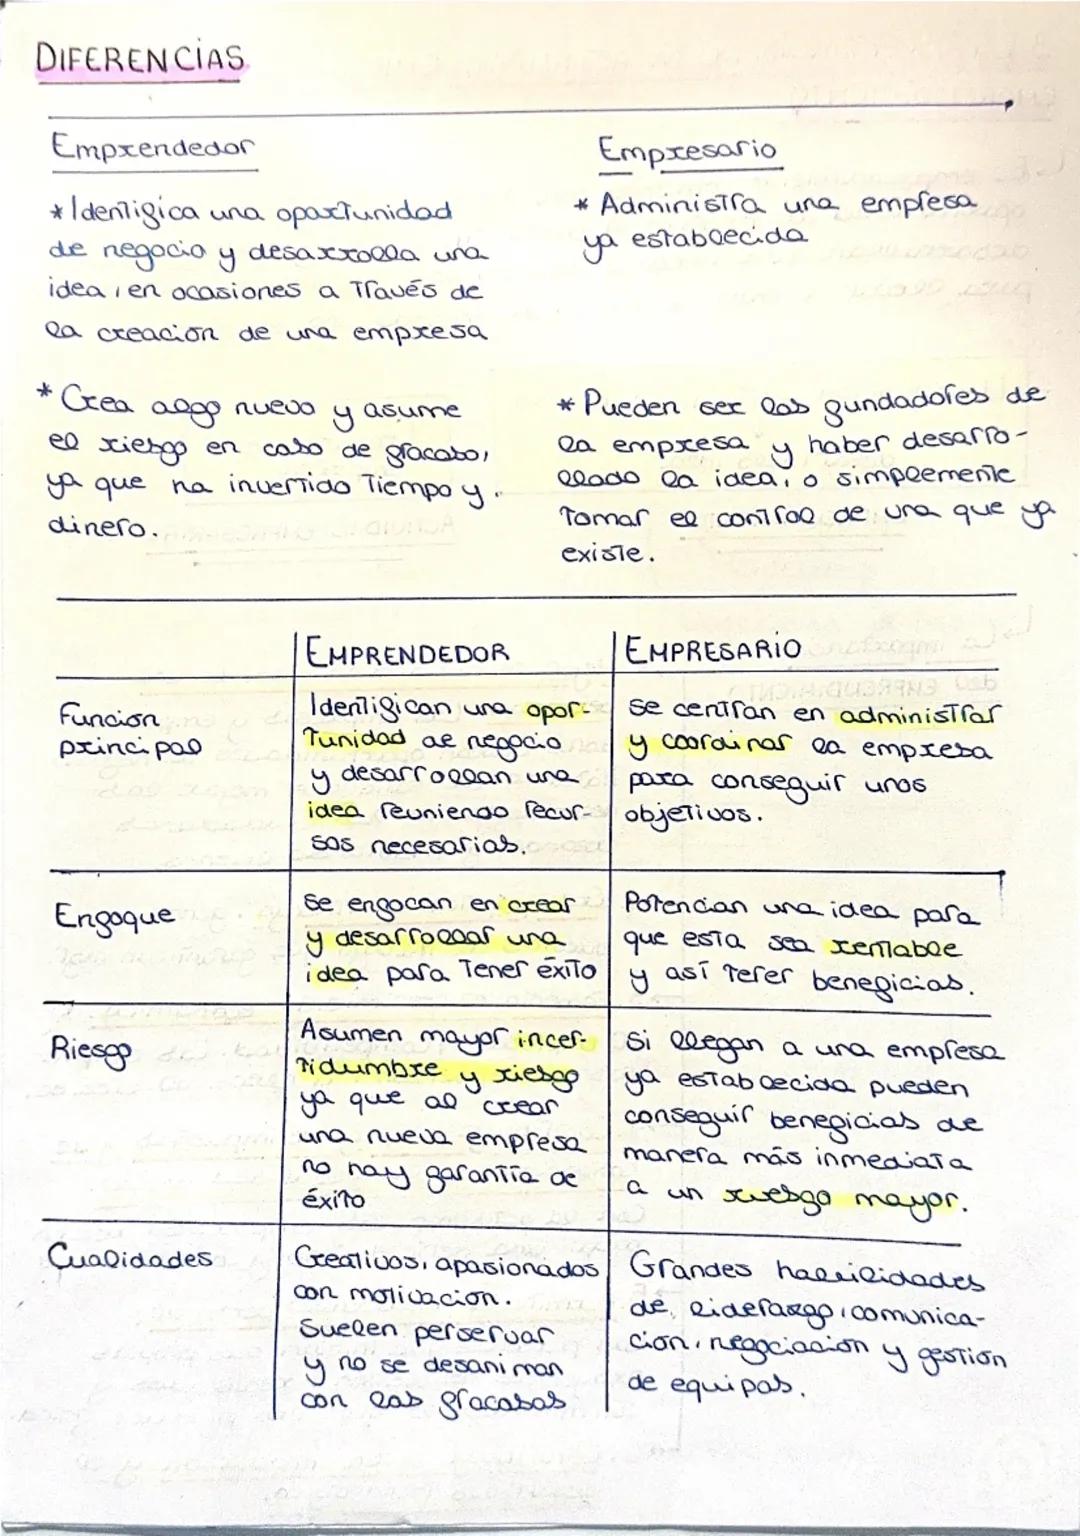 DIFERENCIAS
Emprendedor
* Identifica una oportunidad
de negocio y desarrolla una
idea, en ocasiones a través de
la creación de una empresa
* Crea algo nuevo y asume
el riesgo en caso de fracaso,
ya que ha invertido tiempo y
dinero.
Empresario
* Administra una empresa
ya establecida
* Pueden ser los fundadores de
la empresa y haber desarro-
llado la idea, o simplemente
tomar el control de una que ya
existe.
EMPRENDEDOR
EMPRESARIO
Función
principal
Identifican una opor-
tunidad de negocio
y desarrollan una
idea reuniendo recur-
sos necesarios.
se centran en administrar
y coordinar la empresa
para conseguir unos
objetivos.
Enfoque
se enfocan en crear
y desarrollar una
idea para tener éxito
Potencian una idea para
que esta sea rentable
y así tener beneficios.
Riesgo
Asumen mayor incer-
tidumbre y riesgo
ya que al crear
una nueva empresa
no hay garantía de
éxito
Si llegan a una empresa
ya establecida pueden
conseguir beneficios de
manera más inmediata
a un riesgo mayor.
Cualidades
Creativos, apasionados
con motivación.
Suelen perservar
y no se desaniman
con los fracasos
Grandes habilidades
de liderazgo, comunica-
ción, negociación y gestión
de equipos.